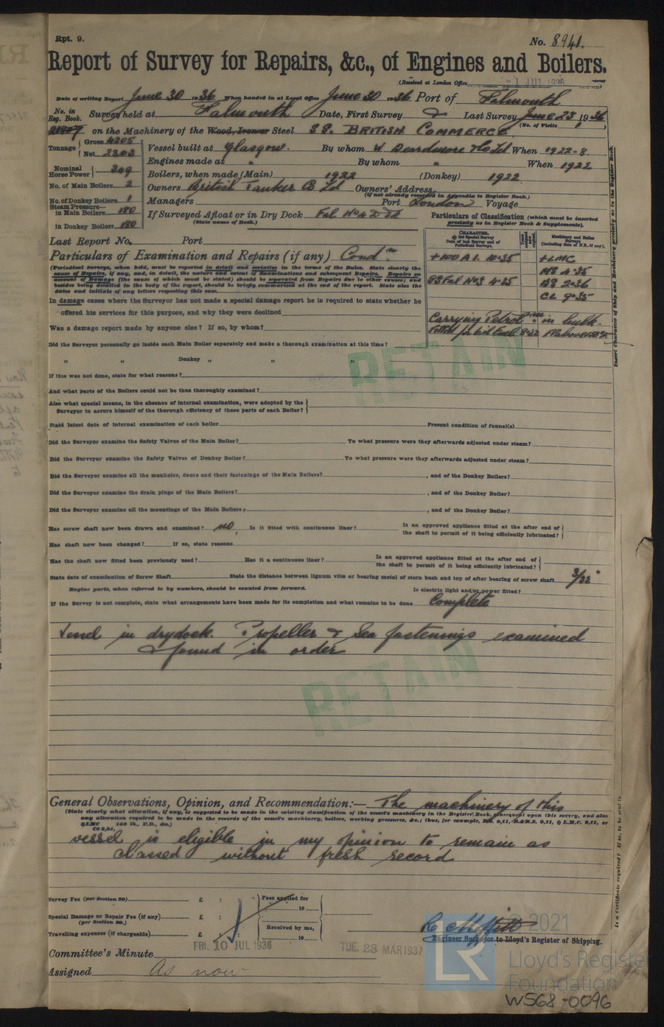 Rpt. 9.
No. 8941.
Report of Survey for Repairs, &c., of Engines and Boilers.
(Received at London Office
Date of writing Report June 30 1936 When handed in at Local Office June 30 1936 Port of Falmouth
No. in Reg. Book. Survey held at Falmouth Date, First Survey Last Survey June 23, 1936
(No. of Visits
on the Machinery of the Wood, Iron or Steel SS. BRITISH COMMERCE
Tonnage Gross 4205 Net 2303 Vessel built at Glasgow. By whom W Beardmore & Co Ltd When 1922-8
Engines made at " By whom " When 1922
Nominal Horse Power Boilers, when made (Main) 1922 (Donkey) 1922
No. of Main Boilers 2 Owners British Tanker Co Ltd Owners' Address
(if not already recorded in Appendix to Register Book.)
No. of Donkey Boilers 1 Managers Port London Voyage
Steam Pressure— in Main Boilers 180
in Donkey Boilers 180 If Surveyed Afloat or in Dry Dock Fal No 4 D Dk
(State name of Dock.)
Last Report No. Port
Particulars of Examination and Repairs (if any) Condn
Particulars of Classification (which must be inserted precisely as in Register Book & Supplements).
+100 A1. 10·35
SS Fal No 3 4·35
+LMC
MS 4·35
BS 2·36
CL 9·35
Carrying Petrolm in bulk
(Periodical Surveys, when held, must be reported in detail and seriatim in the terms of the Rules. State clearly the cause of Repairs, if any, and, in detail, the nature and extent of Examinations and subsequent Repairs. Repairs on account of Damage (the cause of which must be stated) should be separated from Repairs due to other causes; and besides being detailed in the body of the report, should be briefly summarized at the end of the report. State also the dates and initials of any letters respecting this case.
In damage cases where the Surveyor has not made a special damage report he is required to state whether he
offered his services for this purpose, and why they were declined
Was a damage report made by anyone else? If so, by whom?
Did the Surveyor personally go inside each Main Boiler separately and make a thorough examination at this time?
" " Donkey " " "
If this was not done, state for what reasons?
And what parts of the Boilers could not be thus thoroughly examined?
Also what special means, in the absence of internal examination, were adopted by the Surveyor to assure himself of the thorough efficiency of those parts of each Boiler?
State latest date of internal examination of each boiler Present condition of funnel(s)
Did the Surveyor examine the Safety Valves of the Main Boiler? To what pressure were they afterwards adjusted under steam?
Did the Surveyor examine the Safety Valves of Donkey Boiler? To what pressure were they afterwards adjusted under steam?
Did the Surveyor examine all the manholes, doors and their fastenings of the Main Boilers? , and of the Donkey Boilers?
Did the Surveyor examine the drain plugs of the Main Boilers? , and of the Donkey Boiler?
Did the Surveyor examine all the mountings of the Main Boilers? , and of the Donkey Boiler?
Has screw shaft now been drawn and examined? no Is it fitted with continuous liner? Is an approved appliance fitted at the after end of the shaft to permit of it being efficiently lubricated?
Has shaft now been changed? If so, state reasons
Has the shaft now fitted been previously used? Has it a continuous liner? Is an approved appliance fitted at the after end of the shaft to permit of it being efficiently lubricated?
State date of examination of Screw Shaft State the distance between lignum vitæ or bearing metal of stern bush and top of after bearing of screw shaft 3/32"
Engine parts, when referred to by numbers, should be counted from forward. Is electric light and/or power fitted?
If the Survey is not complete, state what arrangements have been made for its completion and what remains to be done Complete
Vessel in drydock. Propeller & Sea fastenings examined
& found in order
RETAIN
RETAIN
General Observations, Opinion, and Recommendation:— The machinery of this
(State clearly what alteration, if any, is suggested to be made in the existing classification of the vessel's machinery in the Register Book, consequent upon this survey, and also
vessel is eligible in my opinion to remain as
classed without fresh record
Survey Fee (per Section 29) £ : : Fees applied for 19
Special Damage or Repair Fee (if any) (per Section 29.) £ : :
Travelling expenses (if chargeable) £ : : Received by me, 19
Engineer Surveyor to Lloyd's Register of Shipping.
FRI. 10 JUL 1936
TUE. 23 MAR 1937
Committee's Minute
Assigned As now
© 2021
LR
Lloyd's Register
Foundation
W568-0096